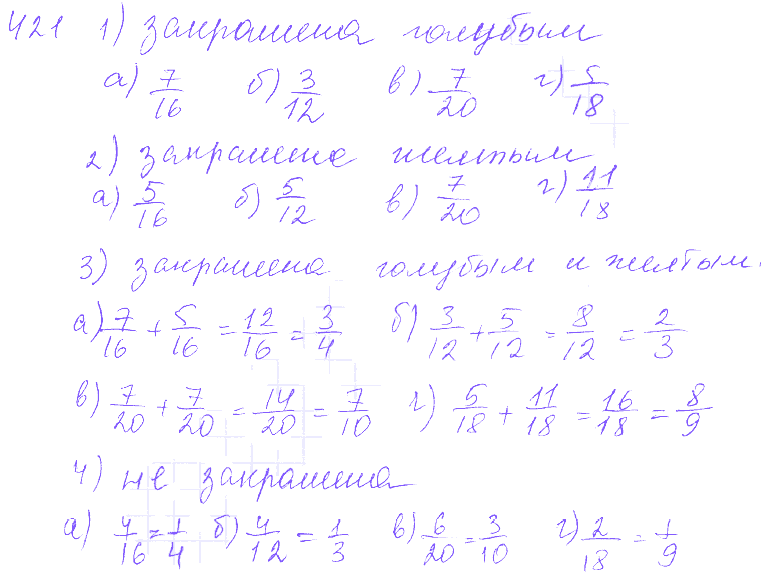 421 1) закрашена голубым
а) 7/16 б) 3/12 в) 7/20 г) 5/18
2) закрашена желтым
а) 5/16 б) 5/12 в) 7/20 г) 11/18
3) закрашена голубым и желтым.
а) 7/16 + 5/16 = 12/16 = 3/4 б) 3/12 + 5/12 = 8/12 = 2/3
в) 7/20 + 7/20 = 14/20 = 7/10 г) 5/18 + 11/18 = 16/18 = 8/9
4) не закрашена
а) 4/16 = 1/4 б) 4/12 = 1/3 в) 6/20 = 3/10 г) 2/18 = 1/9